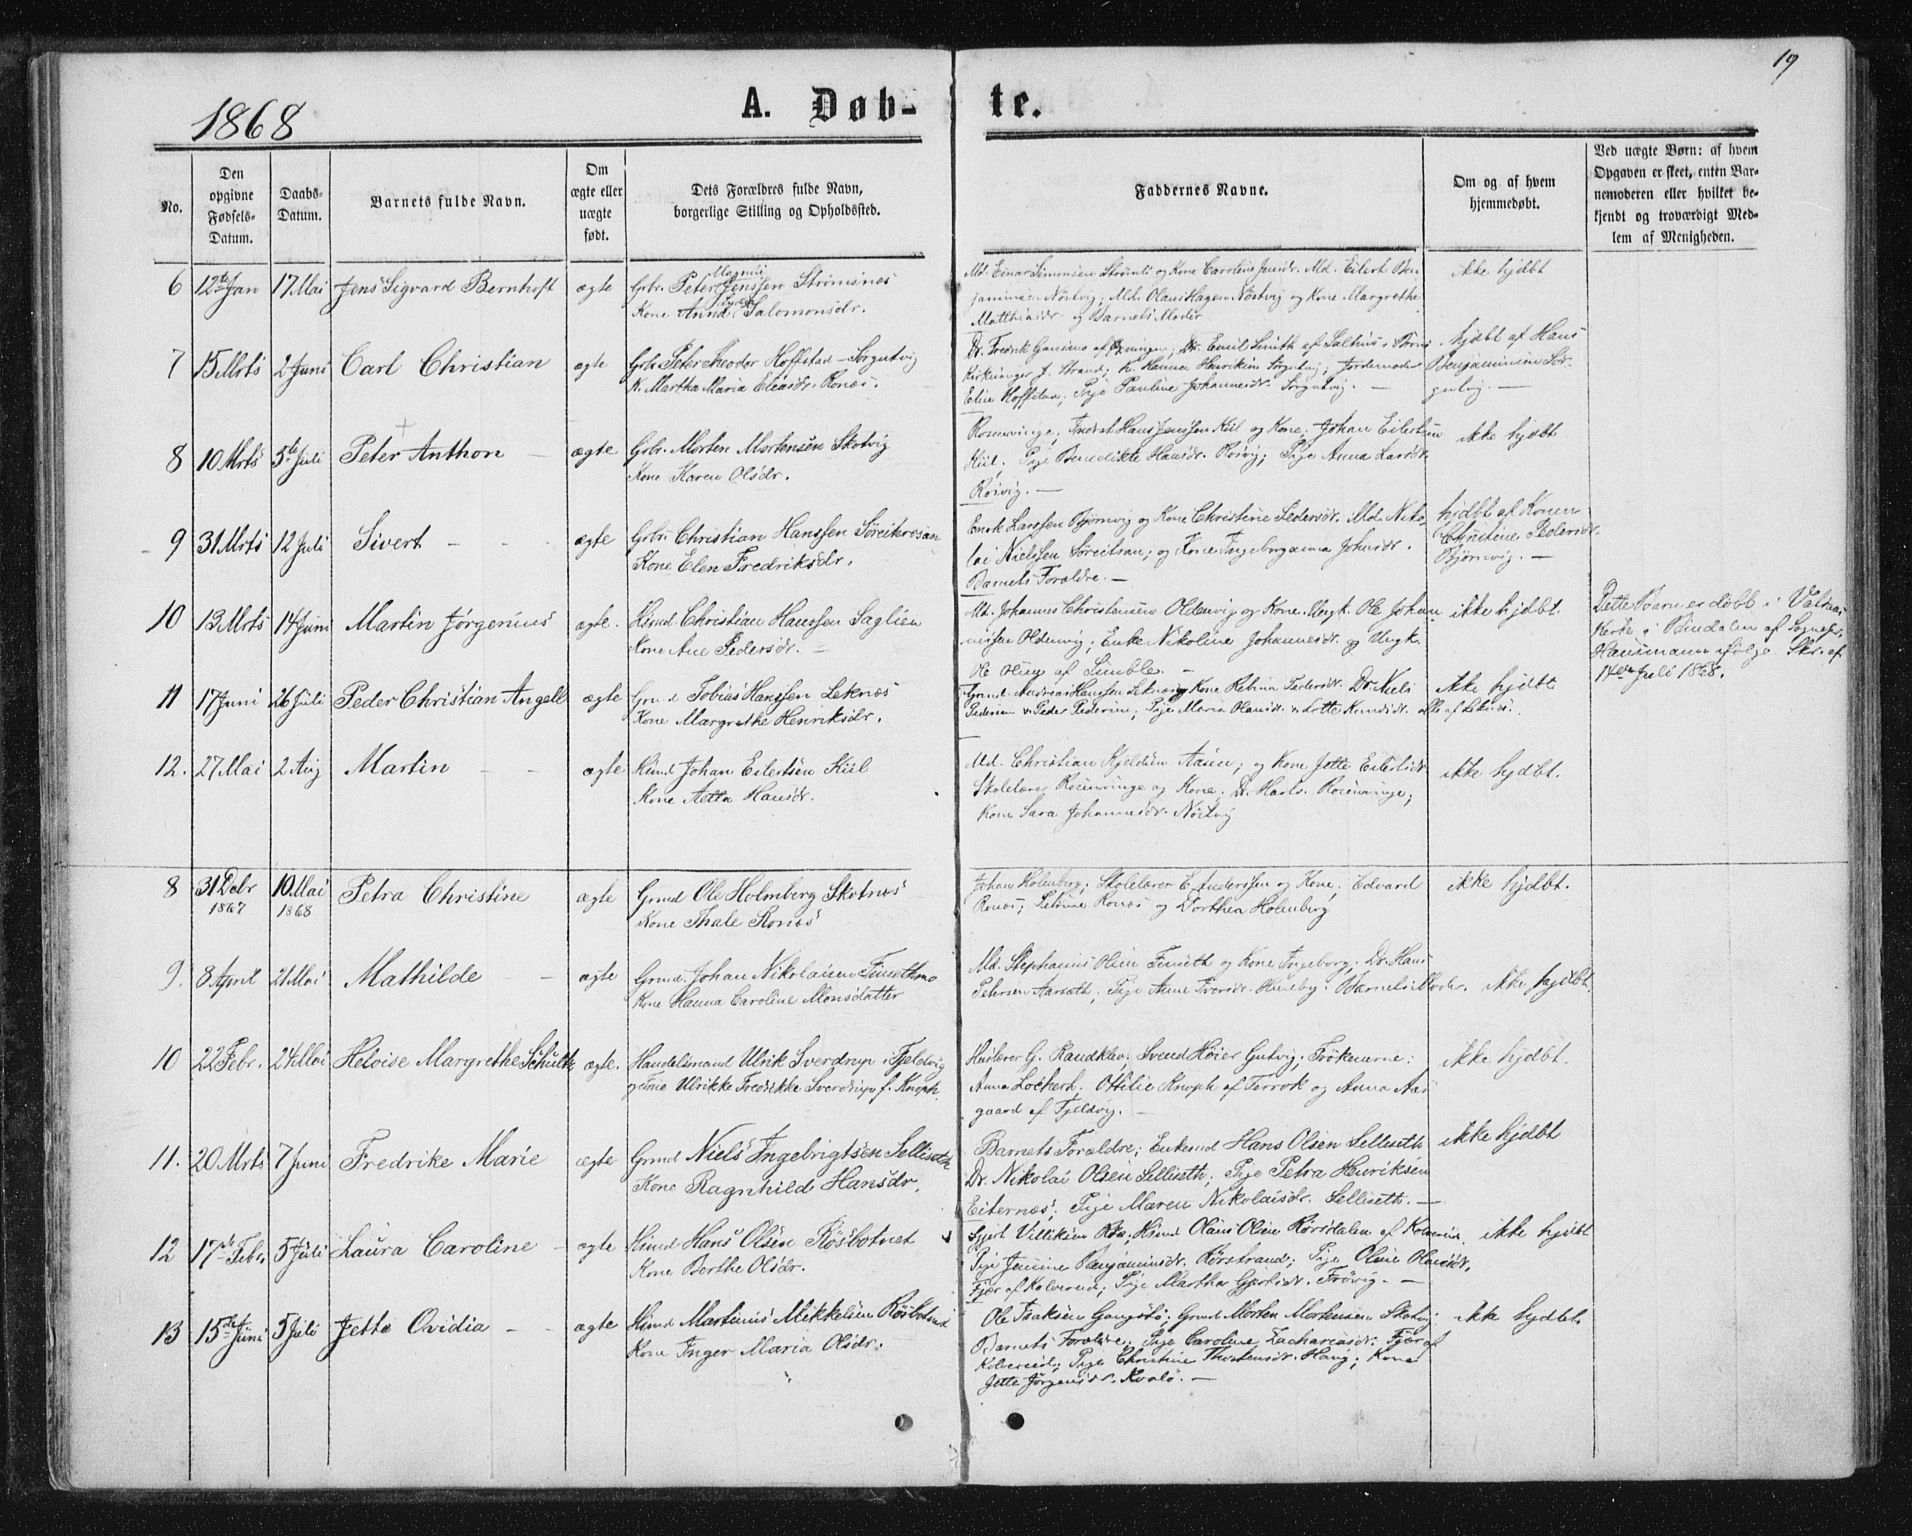 19
1868
A. Døb-te.
No.
Den opgivne Fødsels-Datum.
Daabs-Datum.
Barnets fulde Navn.
Om ægte eller uægte født.
Dets Forældres fulde Navn, borgerlige Stilling og Opholdssted.
Faddernes Navne.
Om og af hvem hjemmedøbt.
Ved uægte Børn: af hvem Opgaven er skeet, enten Barnemoderen eller hvilket bekjendt og troværdigt Medlem af Menigheden.
6 12te Jan 17 Mai Jens Sigvard Bernhoft ægte Gbr. Peter Magnus Jenssen Strømsnæs
Kone Anna Salomonsdr.
Md. Einar Simonsen Strømli og Kone Caroline Jensdr. Md. Eilert Ben
jaminsen Nöstvig; Md. Olaus Hagen Nöstvig og Kone Margrethe
Matthiasdr og Barnets Moder
ikke hjdbt
7 15 Mrts 2 Juni Carl Christian ægte Gbr. Peter Theodor Hoffstad - Sörgutvig
K. Martha Maria Eliasdr. Ronæs.
Elin Hoffstad; Pige Pauline Johannesdr. Sörgutvig. —
hjdbt af Hans
Benjaminsen Sör-
gutvig. —
8 10 Mrts 5te Juli Peter Anthon — ægte Gbr. Morten Mortensen Skotvig
Kone Karen Olsdr.
Rosenvinge; Hans Jenssen Kiil og Kone, Johan Eilertsen
Kiil; Pige Benedikte Hansdr. Roivig; Pige Anna Larsdr.
Roivig. —
ikke hjdbt
9 31 Mrts 12 Juli Sivert - - - ægte Gbr. Christian Hanssen
Kone Elen Fredriksdr.
Larssen Bjørnvig og Kone Christine Pedersdr. Md. Niko
lai Nielssen; og Kone Ingeborganna Johnsdr.
Barnets Forældre. —
hjdbt af Konen
Christine Pedersdr.
Bjørnvig. —
10 13 Mrts 14 Juni Martin Jørgenius ægte. Hmd Christian Hanssen Saglien
Kone Ane Pedersdr. —
Md. Johannes Christensen Oldervig og Kone. Ungk. Ole Johan
nessen Oldervig; Enke Nikoline Johannesdr. og Ungk.
ikke hjdbt.
Dette Barn er döbt i
Kirke i Bindalen af Sognepr.
Hansmann ifölge Skr. af
14de Juli 1868.
11 17 Juni 26 Juli Peder Christian Angell ægte Grmd Tobias Hanssen Leknæs
Kone Margrethe Henriksdr.
Grmd. Andreas Hanssen Leknæs og Kone Petrina Pedersdr. Dr. Niels
Pedersen & Peder Pedersen; Pige Maria Olausdr. & Lotte Knudsdr. alle af Leknæs.
ikke hjdbt
12. 27 Mai 2 Aug Martin - - ægte Hmd Johan Eilertsen Kiil
Kone Aetta Hansdr.
Md. Christian Kjeldsen Aasen; og Kone Jette Eilertsdr.
Skolelærer Rosenvinge og Kone. Dr. Hartv. Rosenvinge;
Kone Sara Johannesdr. Nöstvig
ikke hjdbt.
8 31 Debr 1867 10 Mai 1868 Petra Christine ægte Grmd Ole Holmberg Skotnæs
Kone Thale Ronæs
Johan Holmberg; Skolelærer E. Anderssen og Kone; Edvard
Ronæs; Petrine Ronæs og Dorthea Holmberg
ikke hjdbt.
9. 8 April 21 Mai Mathilde — ægte Grmd. Johan Nikolaisen Finsethmo
Kone Hanna Caroline Monsdatter
Md. Stephanus Olsen Finseth og Kone Ingeborg; Dr. Hans
Petersen Aarseth; Pige Anne Iversdr. Huseby. Barnets Moder.
ikke hjdbt.
10 22 Febr. 24 Mai Heloise Margrethe Schulte ægte. Handelsmand Ulrik Sverdrup Fjeldvig
og Frue Ulrikke Fredrikke Sverdrup f. Knoph.
Huslærer G. Randklev; Svend Höier Gutvig; Frökenerne:
Anna Lockert. Ottilie Knoph af Terrok og Anna Aas
gaard af Fjeldvig. —
ikke hjdbt.
11. 20 Mrts 7 Juni Fredrike Marie ægte Grmd Niels Ingebrigtsen Selliseth
Kone Ragnhild Hansdr.
Barnets Forældre; Enkemd Hans Olsen Selliseth
Dr. Nikolai Olsen Selliseth; Pige Petra Henriksen
Eiternæs; Pige Maren Nikolaisdr. Selliseth. —
ikke hjdbt
12 17de Febr. 5 Juli Laura Caroline — ægte Hmd Hans Olsen Rösbotnet
Kone Berthe Olsdr.
Gjert Villiksen; Hmd Olaus Olsen af Kolvereid.
Pige Jensine Benjaminsdr. Rørstrand; Pige Oline Olausdr.
Fjær af Kolvereid; Pige Martha Gjertsdr. Frövig. —
ikke hjdbt
13 15de Juni 5 Juli Jette Ovidia - - ægte Hmd Martinus Mikkelsen Rösbotnet
Kone Inger Maria Olsdr.
Ole Isaksen Gangstö; Grmd Morten Mortensen Skotvig
Barnets Forældre; Pige Caroline Zachariasdr. Fjær af
Kolvereid; Pige Christine Thorstensdr. Haug; Kone
Jette Jørgensdr. Kvalö. —
ikke hjdbt.